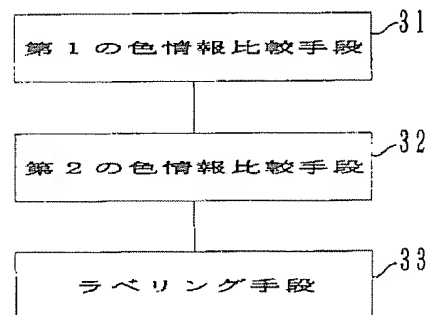 第1の色情報比較手段
31
第2の色情報比較手段
32
ラベリング手段
33